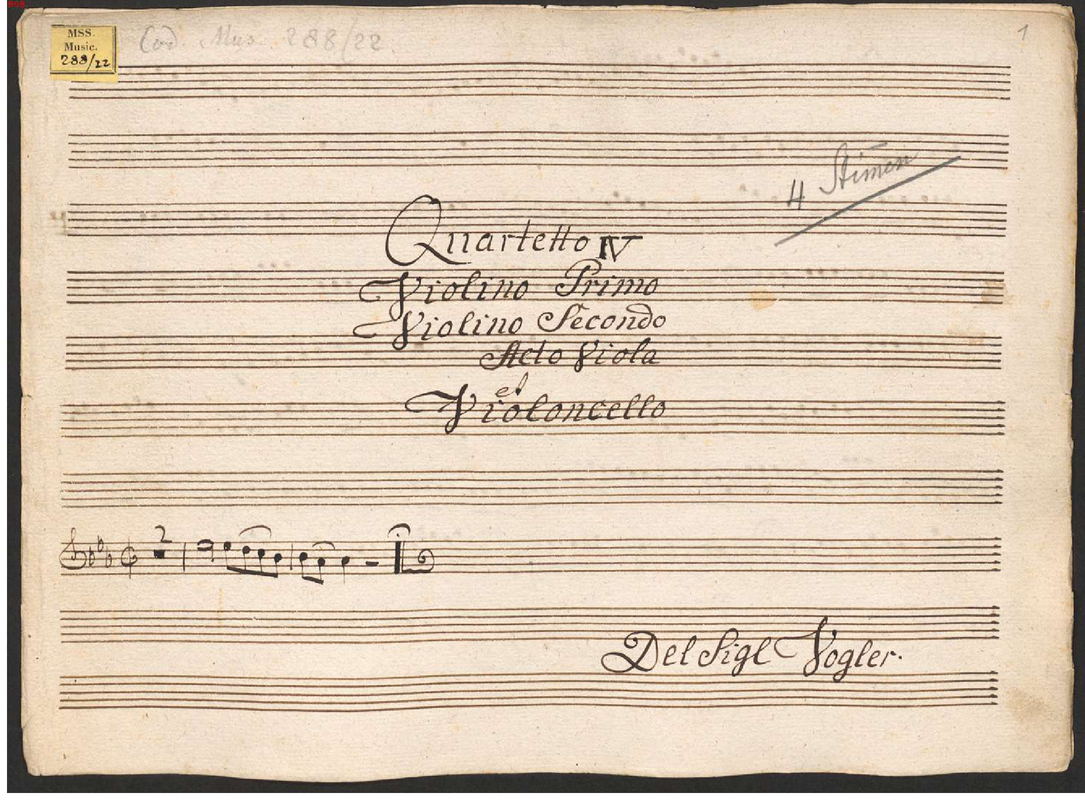 MSS.
Music.
288/22
Cod. Mus. 288/22
1
4 Stimen
Quartetto IV
Violino Primo
Violino Secondo
Acto Viola
et
Violoncello
2
Del Sigl Vogler.